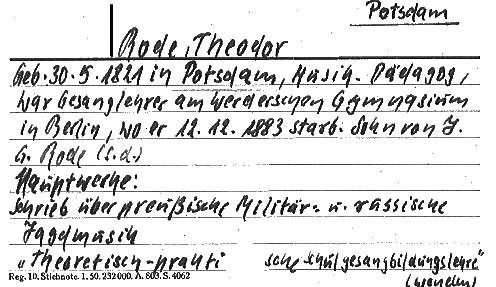 Potsdam
Rode, Theodor
Geb. 30.5.1821 in Potsdam, Musik-Pädagog,
war Gesanglehrer am Werderschen Gymnasium
in Berlin, wo er 12.12.1883 starb. Sohn von J.
G. Rode (s.d.)
Hauptwerke:
Schrieb über preußische Militär- u. russische
Jagdmusik
"Theoretisch-prakti sche Schulgesangbildungslehre"
Reg. 10. Stichnote. 1. 50. 232000. A. 803. S. 4062